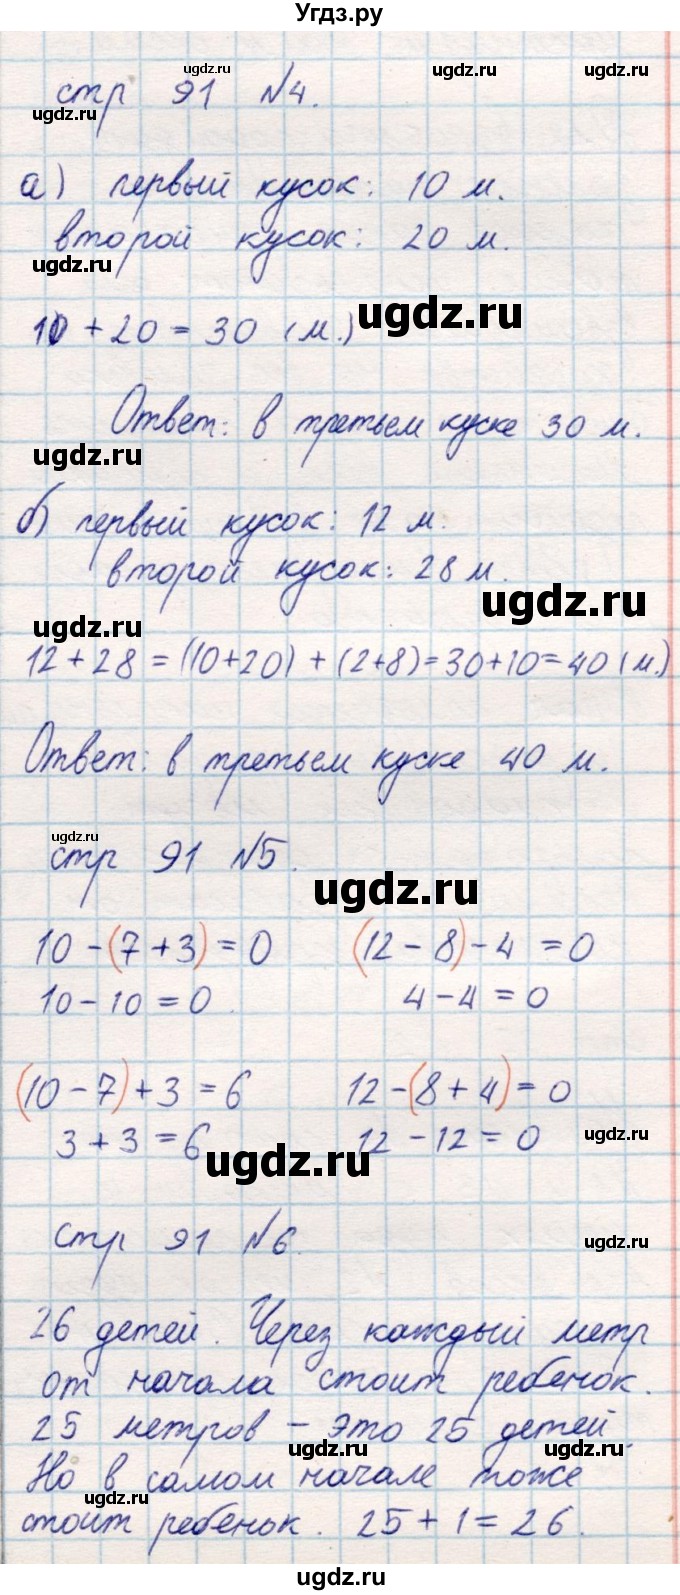 Угдз.ру
ugdz.ru
ugdz.ru
ugdz.ru
стр 91 №4.
ugdz.ru
а) первый кусок: 10 м.
второй кусок: 20 м.
ugdz.ru
ugdz.ru
10 + 20 = 30 (м.)
Ответ: в третьем куске 30 м.
ugdz.ru
б) первый кусок: 12 м.
второй кусок: 28 м.
ugdz.ru
ugdz.ru
12 + 28 = (10+20) + (2+8) = 30+10 = 40 (м.)
Ответ: в третьем куске 40 м.
ugdz.ru
стр 91 №5.
ugdz.ru
10 - (7 + 3) = 0 (12 - 8) - 4 = 0
10 - 10 = 0 4 - 4 = 0
(10 - 7) + 3 = 6 12 - (8 + 4) = 0
3 + 3 = 6 12 - 12 = 0
ugdz.ru
ugdz.ru
стр 91 №6.
ugdz.ru
26 детей. Через каждый метр
от начала стоит ребенок.
25 метров - это 25 детей.
ugdz.ru
ugdz.ru
Но в самом начале тоже
ugdz.ru
стоит ребенок. 25 + 1 = 26.
ugdz.ru